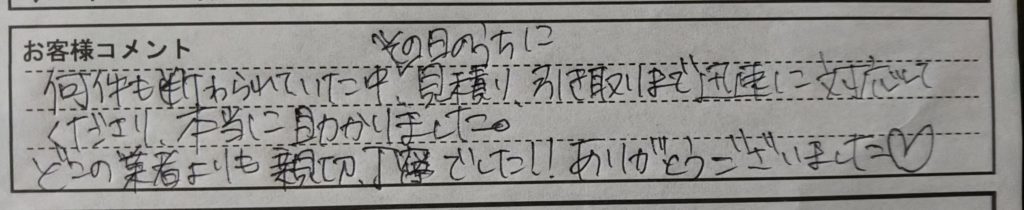 お客様コメント
その日のうちに
何件も断わられていた中、見積り、引き取りまで迅速に対応して
くださり、本当に助かりました。
どこの業者よりも親切、丁寧でした!! ありがとうございました♡